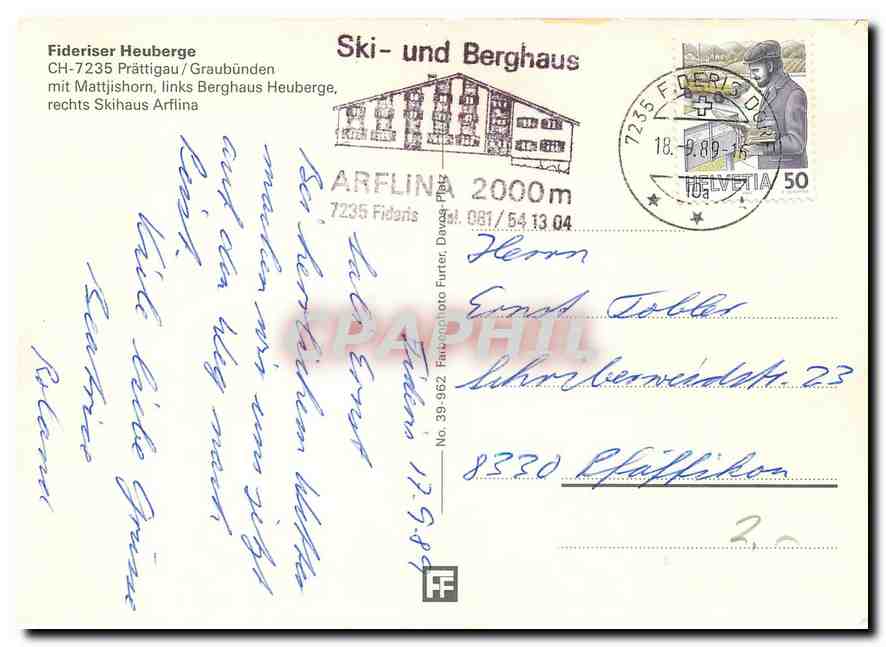 Fideriser Heuberge
CH-7235 Prättigau/Graubünden
mit Mattjishorn, links Berghaus Heuberge,
rechts Skihaus Arflina
Ski- und Berghaus
ARFLINA 2000m
7235 Fideris Tel. 081/54 13 04
7235 FIDERIS
18.-9.89-16
10a
HELVETIA 50
No. 39-962 Farbenphoto Furter, Davos-Platz
Fideris 17.9.89
Salü Ernst
Bei herrlichem Wetter
machen wir uns jetzt
auf den Weg nach
Viele liebe Grüsse
Beatrice
Roland
Herrn
Ernst Tobler
23
8330 Pfäffikon
2.-
FF
CPAPHIL